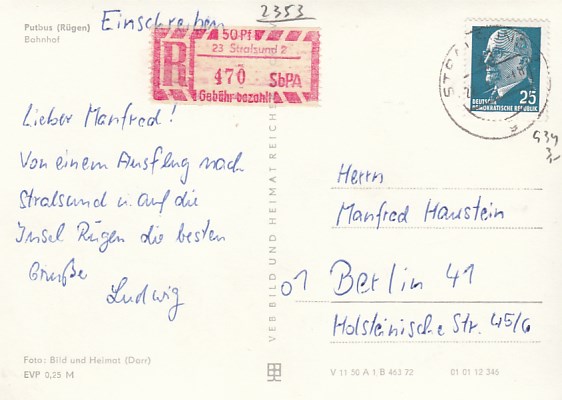 Putbus (Rügen)
Bahnhof
Einschreiben
2353
R
50 Pf
23 Stralsund 2
470 SbPA
Gebühr bezahlt
25
DEUTSCHE
DEMOKRATISCHE REPUBLIK
534
3,-
Lieber Manfred!
Von einem Ausflug nach
Stralsund u. auf die
Insel Rügen die besten
Grüße
Ludwig
VEB BILD UND HEIMAT REICH
Herrn
Manfred Haustein
01 Berlin 41
Holsteinische Str. 45/6
Foto: Bild und Heimat (Darr)
EVP 0,25 M
V 11 50 A 1 B 463 72
01 01 12 346